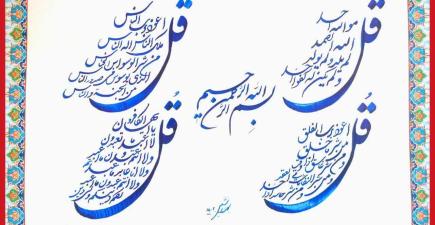 بسم الله الرحمن الرحیم
قل هو الله احد
الله الصمد
لم یلد و لم یولد
و لم یکن له کفوا احد
قل اعوذ برب الناس
ملک الناس اله الناس
من شر الوسواس الخناس
الذی یوسوس فی صدور الناس
من الجنة و الناس
قل اعوذ برب الفلق
من شر ما خلق
و من شر غاسق اذا وقب
و من شر النفاثات فی العقد
و من شر حاسد اذا حسد
قل یا ایها الکافرون
لا اعبد ما تعبدون
ولا انتم عابدون ما اعبد
ولا انا عابد ما عبدتم
ولا انتم عابدون ما اعبد
لکم دینکم ولی دین